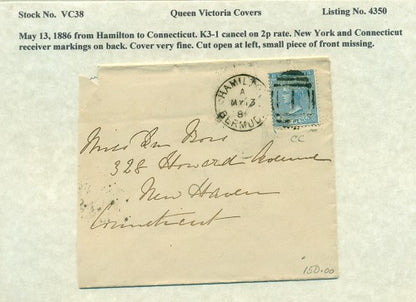 Stock No. VC38 Queen Victoria Covers Listing No. 4350
May 13, 1886 from Hamilton to Connecticut. K3-1 cancel on 2p rate. New York and Connecticut
receiver markings on back. Cover very fine. Cut open at left, small piece of front missing.
HAMILTON
A
MY 13
BERMUDA
CC
Miss
328 Howard Avenue
New Haven
Connecticut
150.00